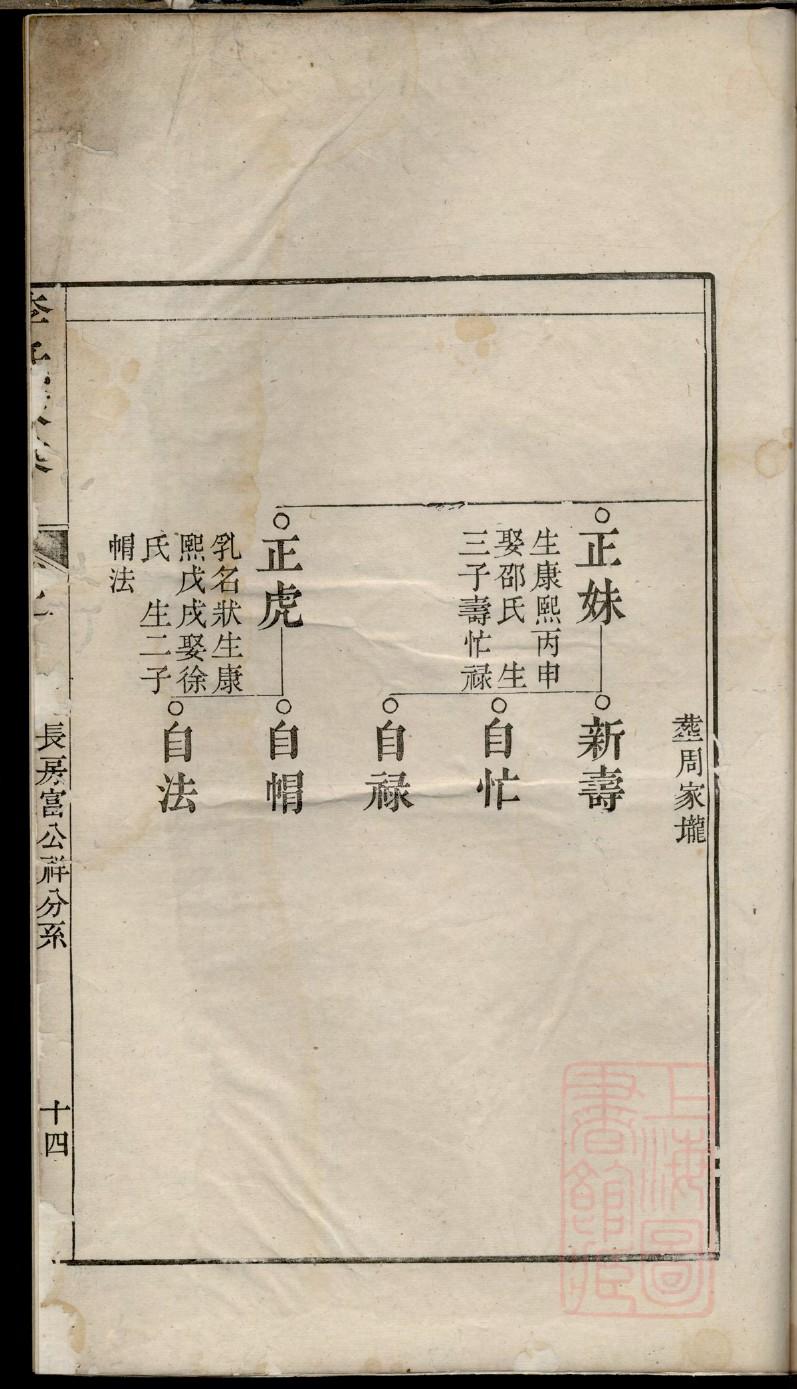 塟周家壠
正妹
生康熙丙申
娶邵氏 生
三子壽忙祿
新壽
自忙
自祿
正虎
乳名狀生康
熙戊戌娶徐
氏 生二子
帽法
自帽
自法
長房富公祥分系
十四
上海圖書館藏